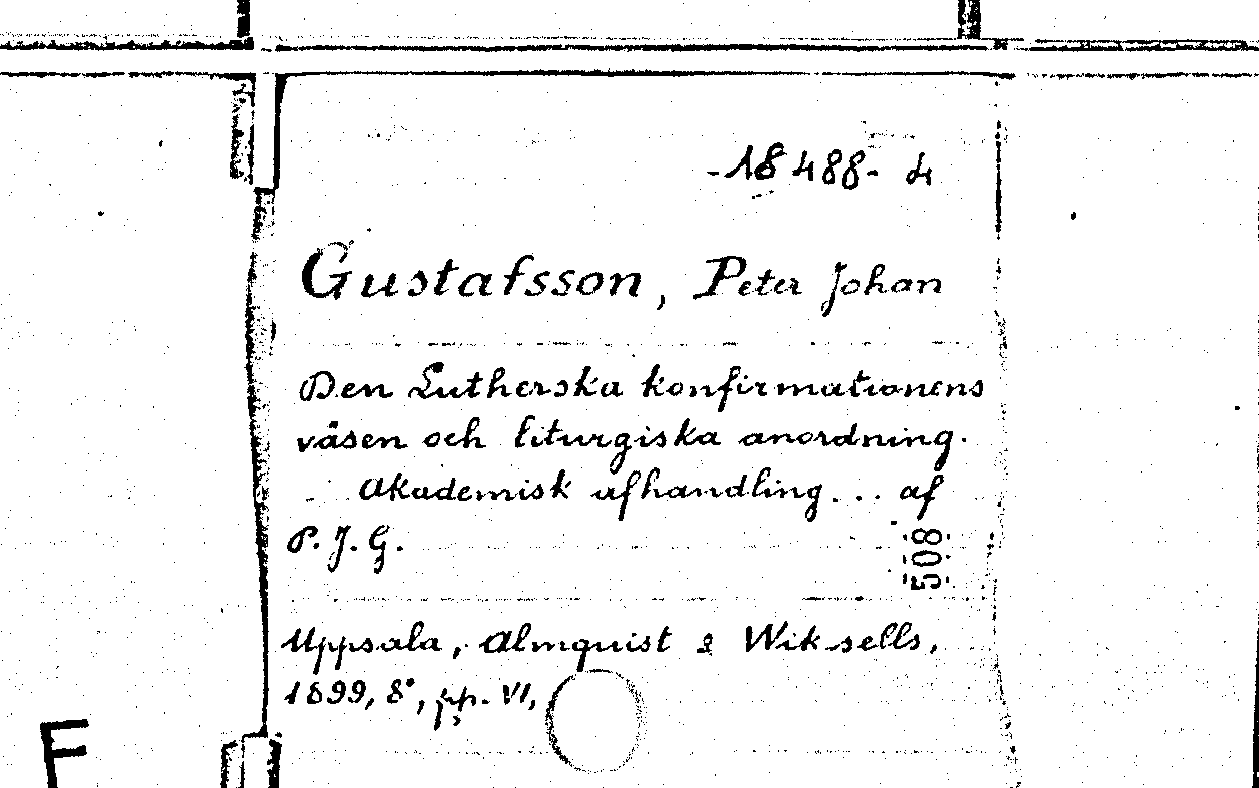 -18488- 4
Gustafsson, Peter Johan
Den Lutherska konfirmationens
väsen och liturgiska anordning.
Akademisk afhandling... af
P. J. G.
508
Uppsala, Almquist & Wiksells,
1899, 8°, pp. VI,
F